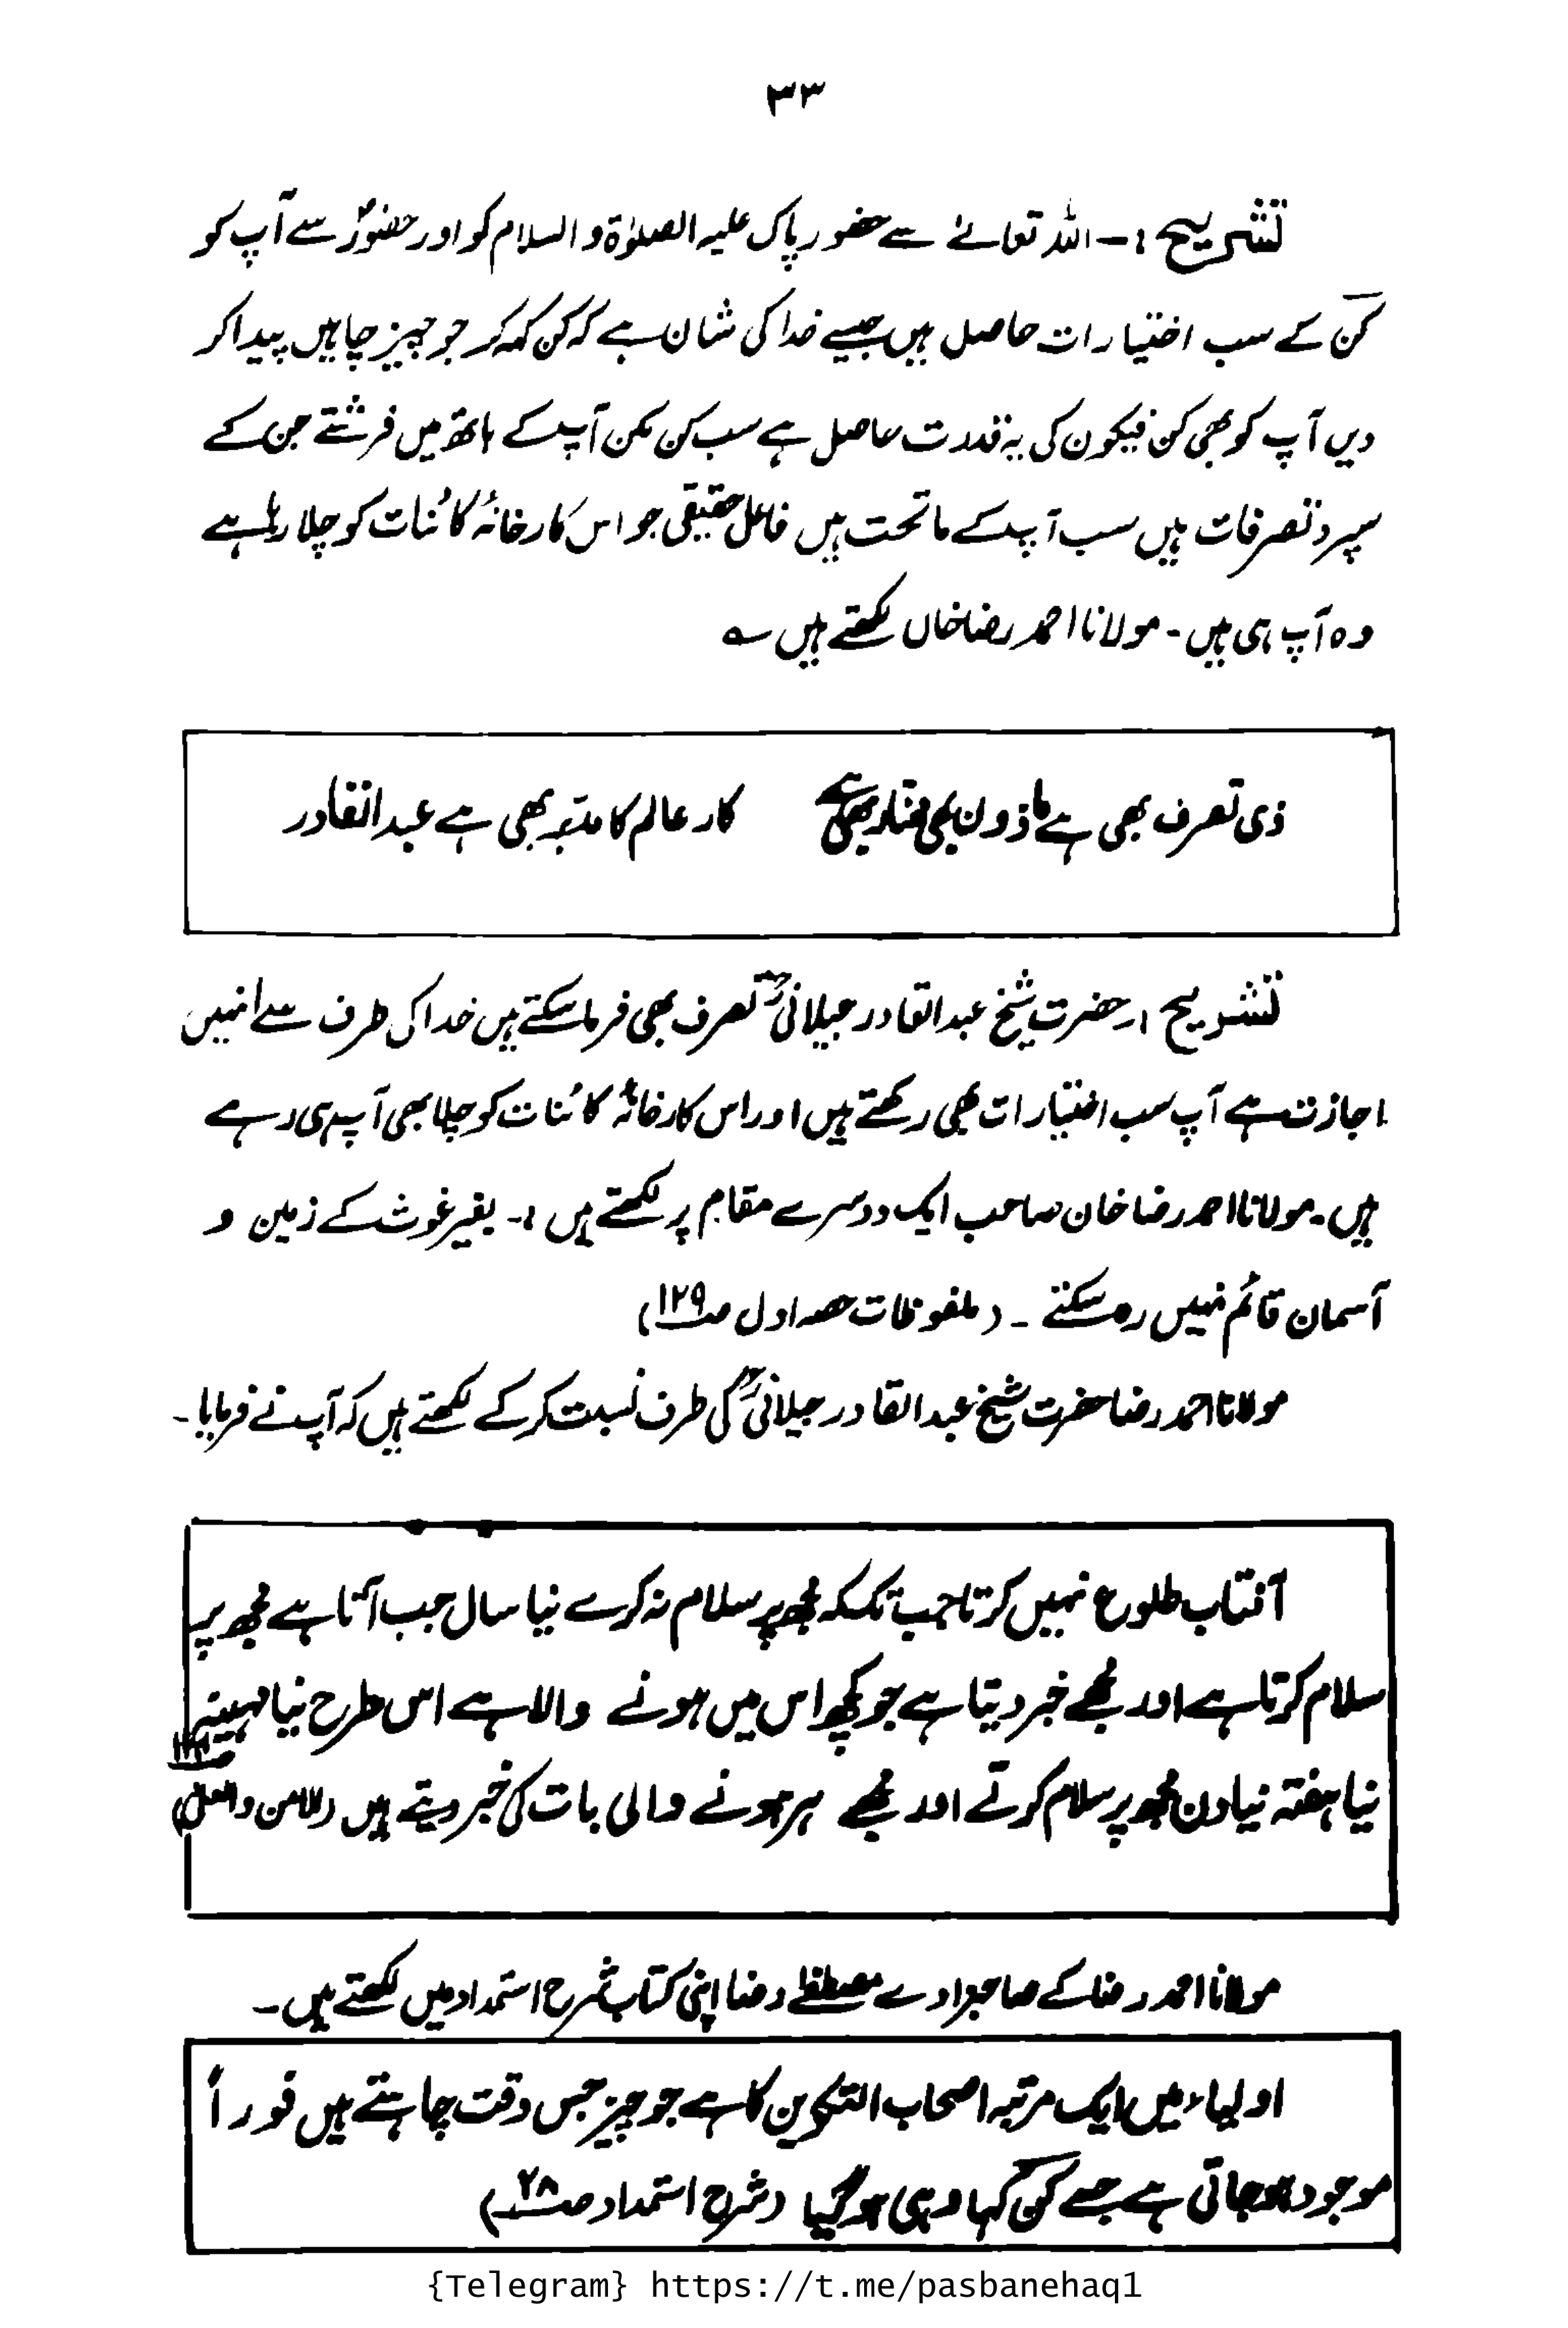 ۳۳
تشریح :- اللہ تعالےٰ سے حضور پاک علیہ الصلوٰۃ و السلام کو اور حضورؐ سے آپ کو
کن کے سب اختیارات حاصل ہیں جیسے خدا کی شان ہے کہ کن کہہ کر جو چیز چاہیں پیدا کر
دیں آپ کو بھی کن فیکون کی یہ قدرت حاصل ہے سب کن مکن آپ کے ہاتھ میں فرشتے جن کے
سپرد تصرفات ہیں سب آپ کے ماتحت ہیں فاعل حقیقی جو اس کارخانۂ کائنات کو چلا رہا ہے
وہ آپ ہی ہیں - مولانا احمد رضا خاں لکھتے ہیں ؎
ذی تصرف بھی ہے ماذون بھی مختار بھی ہے کار عالم کا مدبر بھی ہے عبدالقادر
تشریح :- حضرت شیخ عبدالقادر جیلانیؒ تصرف بھی فرما سکتے ہیں خدا کی طرف سے انہیں
اجازت ہے آپ سب اختیارات بھی رکھتے ہیں اور اس کارخانۂ کائنات کو چلا بھی آپ ہی رہے
ہیں - مولانا احمد رضا خان صاحب ایک دوسرے مقام پر لکھتے ہیں :- بغیر غوث کے زمین و
آسمان قائم نہیں رہ سکتے - (ملفوظات حصہ اول صـ ۱۲۹)
مولانا احمد رضا حضرت شیخ عبدالقادر جیلانیؒ کی طرف نسبت کر کے لکھتے ہیں کہ آپ نے فرمایا -
آفتاب طلوع نہیں کرتا جب تک کہ مجھ پر سلام نہ کرے نیا سال جب آتا ہے مجھ پر
سلام کرتا ہے اور مجھے خبر دیتا ہے جو کچھ اس میں ہونے والا ہے اس طرح نیا مہینہ
نیا ہفتہ نیا دن مجھ پر سلام کرتے اور مجھے ہر ہونے والی بات کی خبر دیتے ہیں (الامن والعلیٰ)
مولانا احمد رضا کے صاحبزادے مصطفےٰ رضا اپنی کتاب شرح استمداد میں لکھتے ہیں -
اولیاء میں ایک مرتبہ اصحاب التکوین کا ہے جو چیز جس وقت چاہتے ہیں فوراً
موجود ہو جاتی ہے جسے کن کہا وہی ہو گیا (شرح استمداد صـ ۲۸)
{Telegram} https://t.me/pasbanehaq1